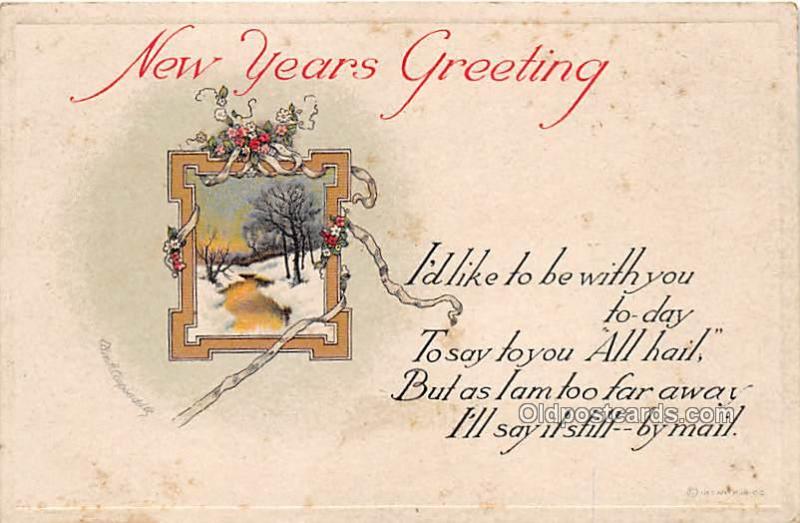 New Years Greeting
I'd like to be with you
to-day
To say to you "All hail,"
But as I am too far away
I'll say it still--by mail.
Oldpostcards.com